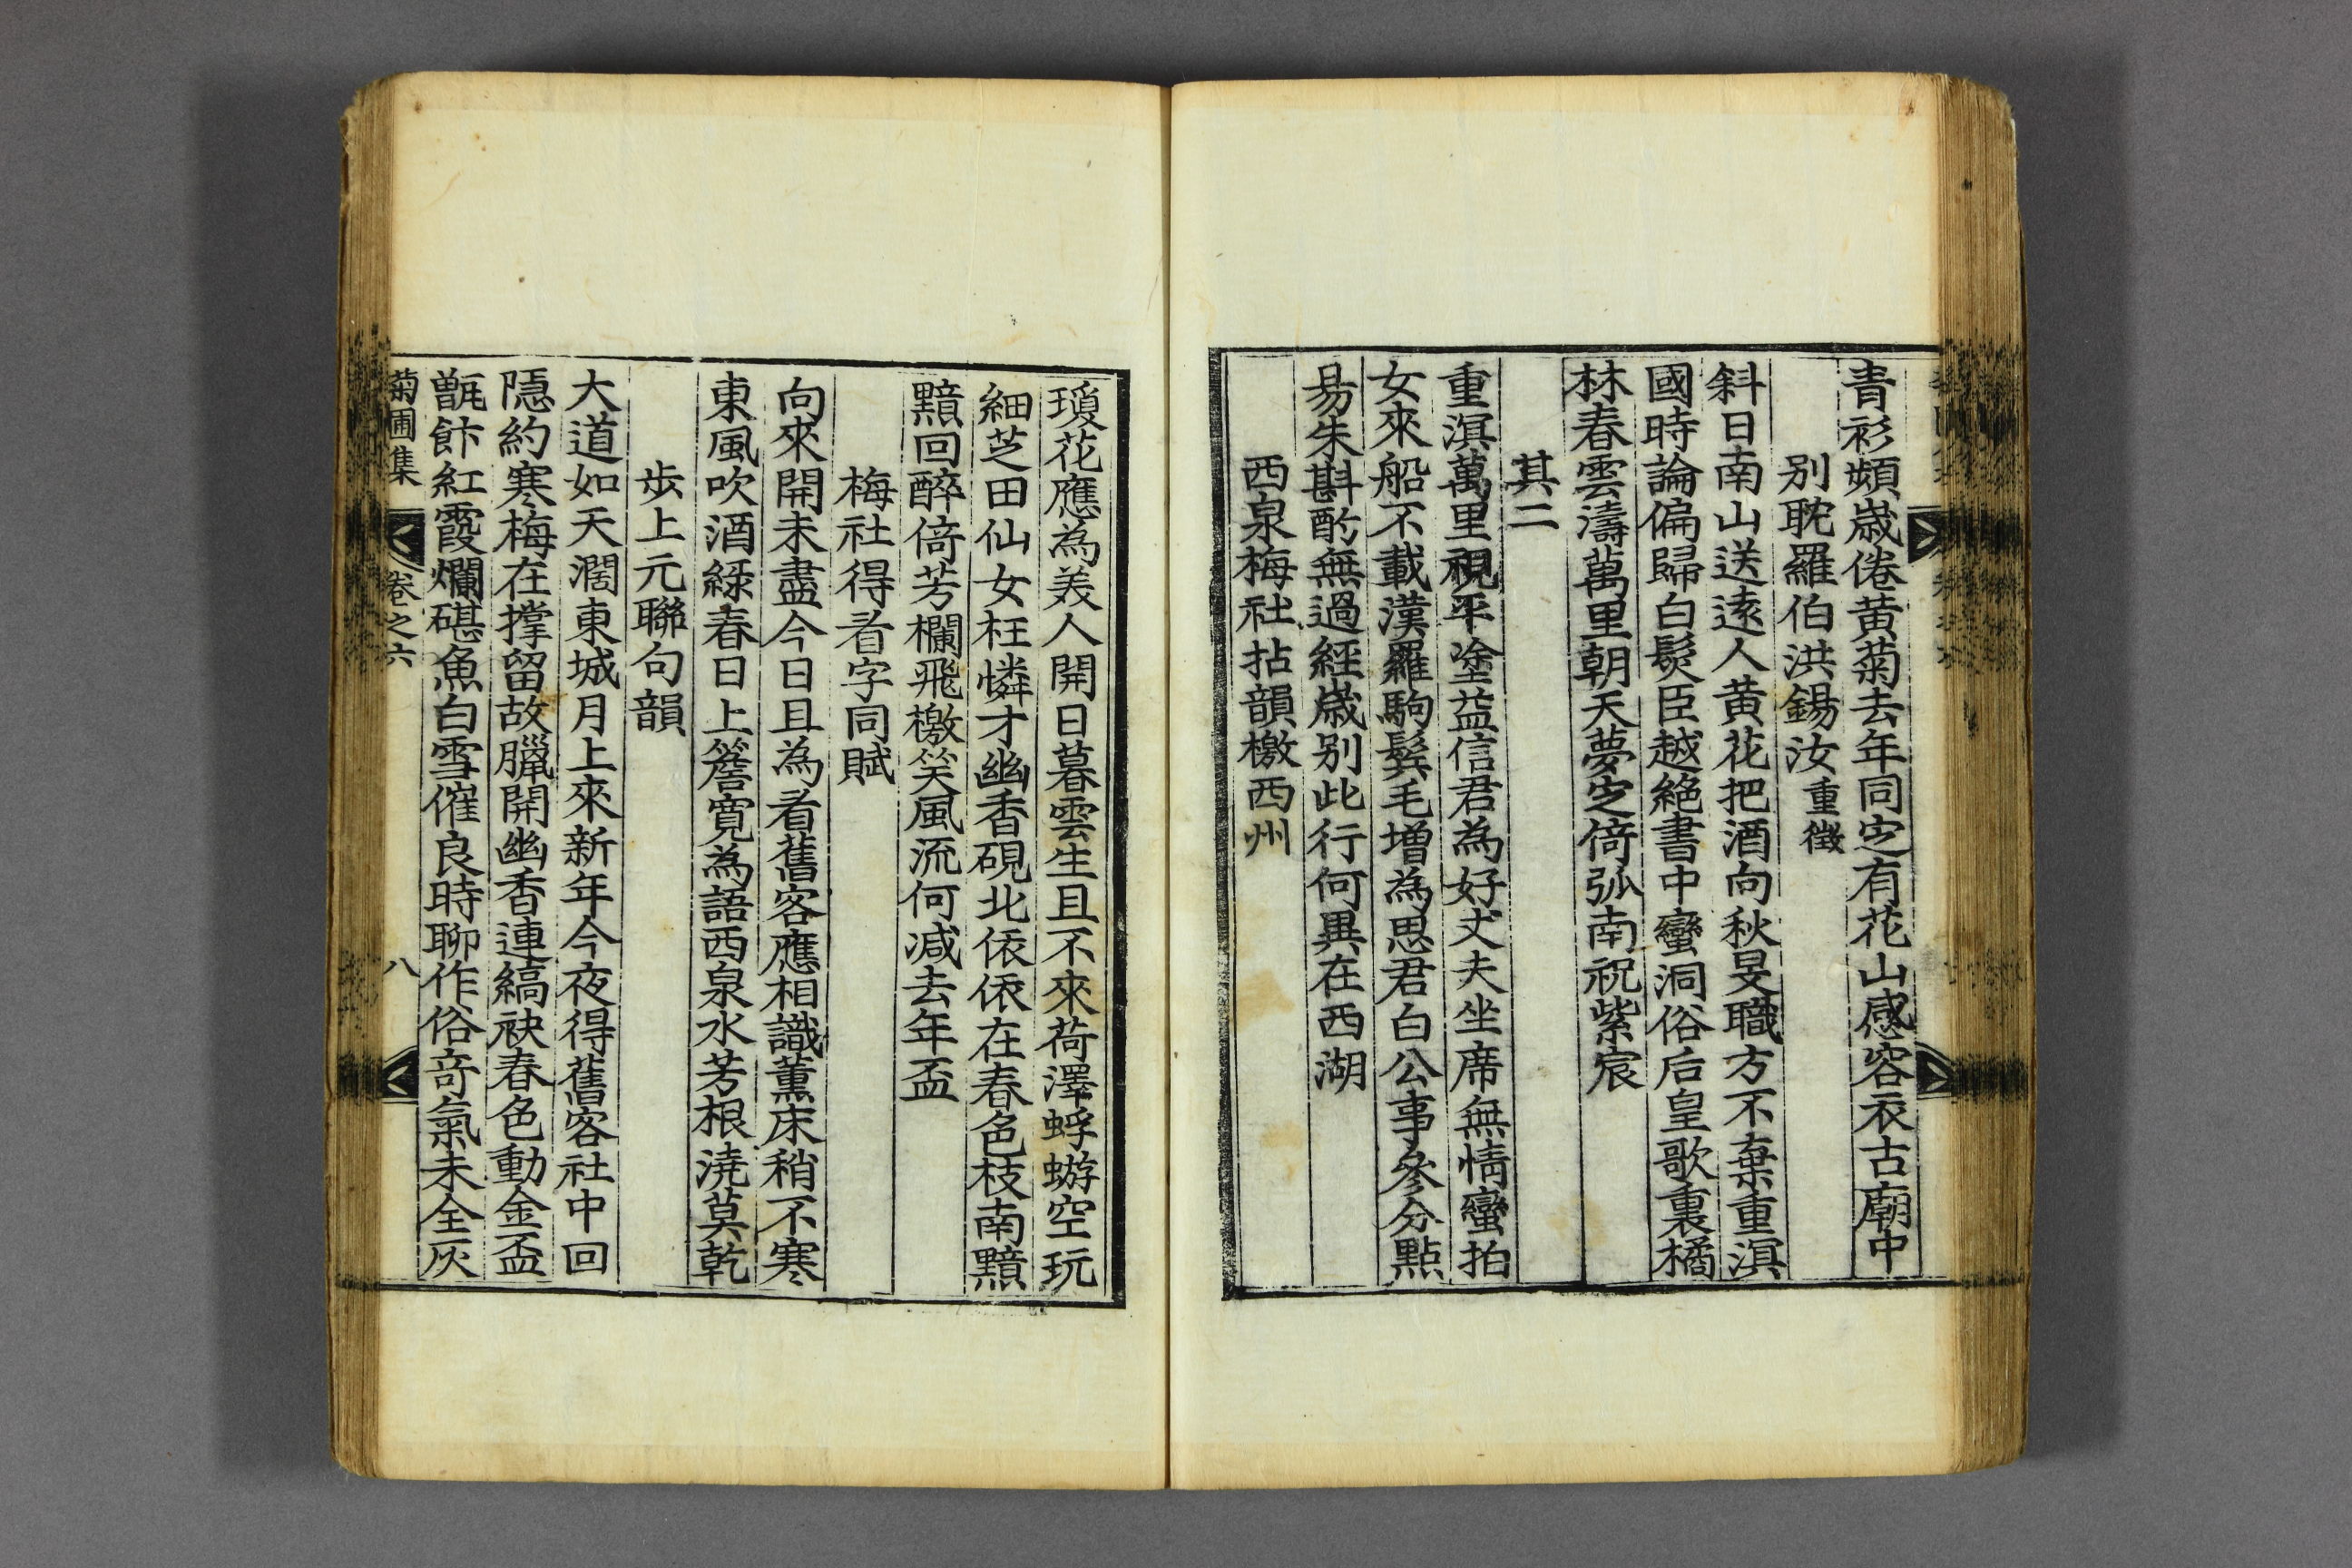 青衫頻歲倦黃菊去年同定有花山感容衣古廟中
別耽羅伯洪錫汝重徵
斜日南山送逺人黃花把酒向秋旻職方不棄重溟
國時論偏歸白髮臣越絕書中蠻洞俗后皇歌裏橘
林春雲濤萬里朝天夢定倚弧南祝紫宸
其二
重溟萬里視平塗益信君為好丈夫坐席無情蠻拍
女來船不載漢羅駒鬂毛增為思君白公事參分點
易朱斟酌無過經歲別此行何異在西湖
西泉梅社拈韻檄西州
瓊花應為美人開日暮雲生且不來荷澤蜉蝣空玩
細芝田仙女枉憐才幽香硯北依依在春色枝南黯
黯回醉倚芳欄飛檄笑風流何減去年盃
梅社得看字同賦
向來開未盡今日且為看舊客應相識薰床稍不寒
東風吹酒綠春日上簷寬為語西泉水芳根澆莫乾
步上元聯句韻
大道如天濶東城月上來新年今夜得舊客社中回
隱約寒梅在撑留故臘開幽香連縞袂春色動金盃
甑飰紅霞爛碪魚白雪催良時聊作俗竒氣未全灰
菊圃集 卷之六 八